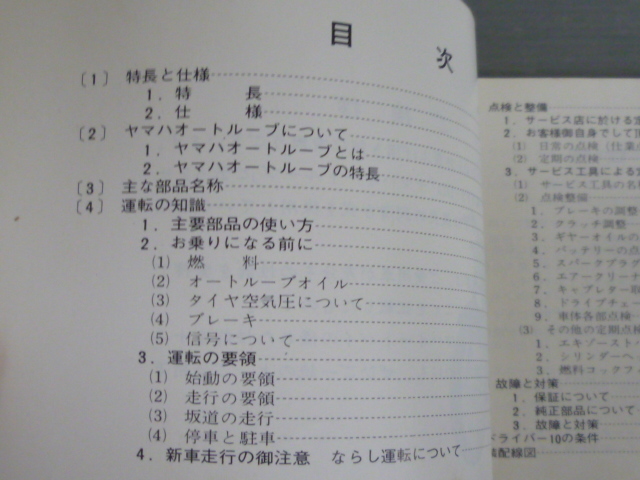 目次
〔1〕 特長と仕様
1. 特長
2. 仕様
〔2〕 ヤマハオートルーブについて
1. ヤマハオートルーブとは
2. ヤマハオートルーブの特長
〔3〕 主な部品名称
〔4〕 運転の知識
1. 主要部品の使い方
2. お乗りになる前に
(1) 燃料
(2) オートルーブオイル
(3) タイヤ空気圧について
(4) ブレーキ
(5) 信号について
3. 運転の要領
(1) 始動の要領
(2) 走行の要領
(3) 坂道の走行
(4) 停車と駐車
4. 新車走行の御注意 ならし運転について
点検と整備
1. サービス店に於ける定
2. お客様御自身でして頂
(1) 日常の点検(仕業
(2) 定期の点検
3. サービス工具による
(1) サービス工具の名
(2) 点検整備
1. ブレーキの調整
2. クラッチ調整
3. ギヤーオイルの
4. バッテリーの点
5. スパークプラグ
6. エアークリー
7. キャブレター取
8. ドライブチェー
9. 車体各部点検
(3) その他の定期点検
1. エキゾースト
2. シリンダーヘ
3. 燃料コックフィ
故障と対策
1. 保証について
2. 純正部品について
3. 故障と対策
ドライバー10の条件
配線図